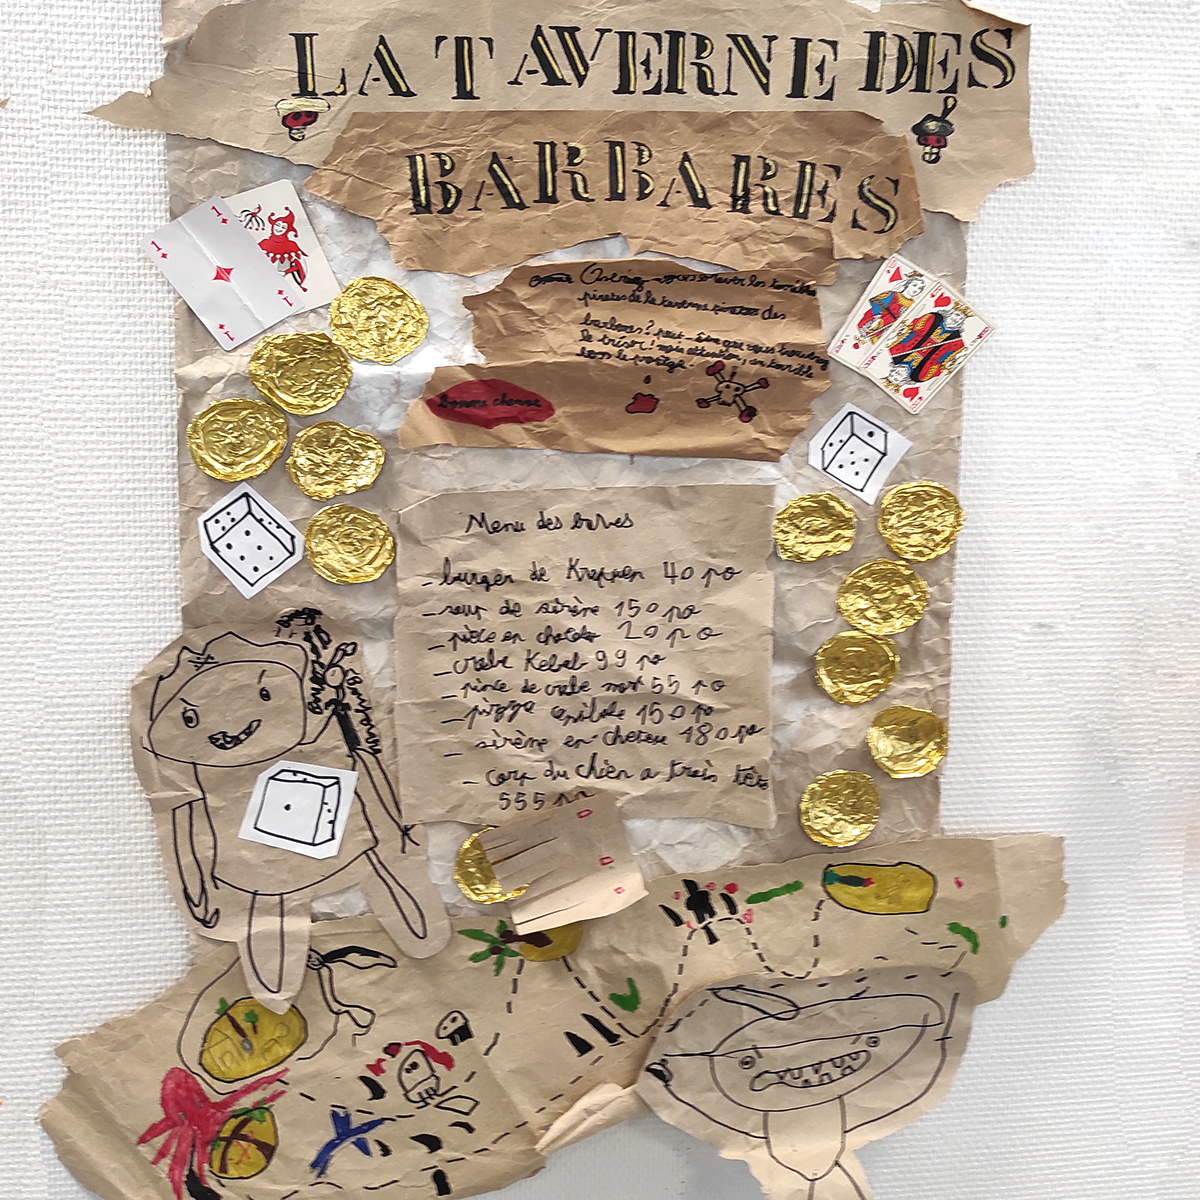 LA TAVERNE DES
BARBARES
Oserez-vous braver les terribles
pirates de la taverne pirates des
barbares? peut-être que vous trouverez
le trésor! mais attention, un terrible
boss le protège.
bonne chance
Menu des barbares
- burger de Kraken 40 po
- soup de sirène 150 po
- pièce en chocolat 20 po
- crabe Kebab 99 po
- pince de crabe 55 po
- pizza 150 po
- sirène en 180 po
- corp du chien a trois tête
555 po